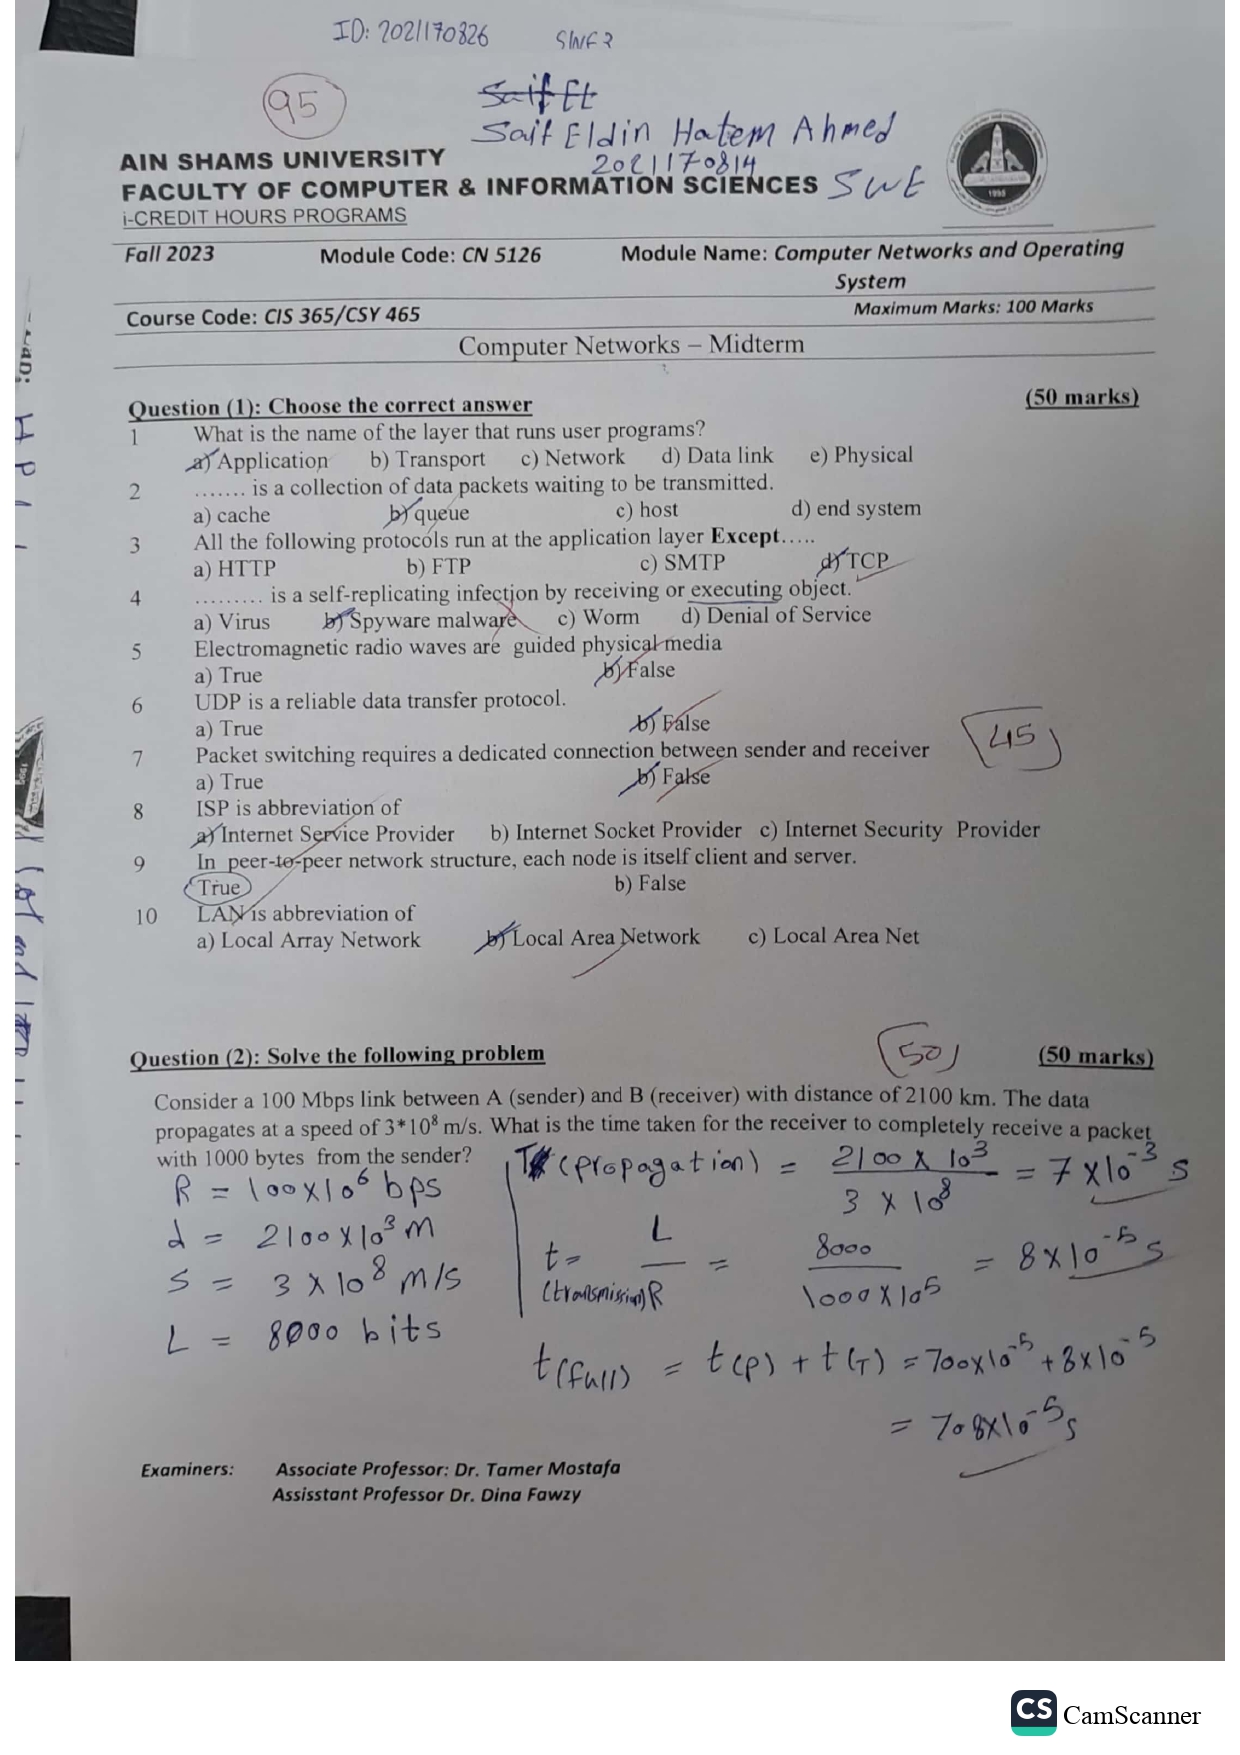 ID: 2021170826 SWE 2
95
Saif El
Saif Eldin Hatem Ahmed
2021170814
SWE
AIN SHAMS UNIVERSITY
FACULTY OF COMPUTER & INFORMATION SCIENCES
i-CREDIT HOURS PROGRAMS
1995
Fall 2023 Module Code: CN 5126 Module Name: Computer Networks and Operating
System
Course Code: CIS 365/CSY 465 Maximum Marks: 100 Marks
Computer Networks – Midterm
Question (1): Choose the correct answer (50 marks)
1 What is the name of the layer that runs user programs?
a) Application b) Transport c) Network d) Data link e) Physical
2 ....... is a collection of data packets waiting to be transmitted.
a) cache b) queue c) host d) end system
3 All the following protocols run at the application layer Except…..
a) HTTP b) FTP c) SMTP d) TCP
4 ......... is a self-replicating infection by receiving or executing object.
a) Virus b) Spyware malware c) Worm d) Denial of Service
5 Electromagnetic radio waves are guided physical media
a) True b) False
6 UDP is a reliable data transfer protocol.
a) True b) False
45
7 Packet switching requires a dedicated connection between sender and receiver
a) True b) False
8 ISP is abbreviation of
a) Internet Service Provider b) Internet Socket Provider c) Internet Security Provider
9 In peer-to-peer network structure, each node is itself client and server.
True b) False
10 LAN is abbreviation of
a) Local Array Network b) Local Area Network c) Local Area Net
Question (2): Solve the following problem 50 (50 marks)
Consider a 100 Mbps link between A (sender) and B (receiver) with distance of 2100 km. The data
propagates at a speed of 3*10⁸ m/s. What is the time taken for the receiver to completely receive a packet
with 1000 bytes from the sender?
T (propagation) = 2100 x 10³ / 3 x 10⁸ = 7 x 10⁻³ s
R = 100x10⁶ bps
d = 2100x10³ m
t (transmission) = L / R = 8000 / 1000 x 10⁵ = 8x10⁻⁵ s
s = 3 x 10⁸ m/s
L = 8000 bits
t(full) = t(P) + t(T) = 700x10⁻⁵ + 8x10⁻⁵
= 708x10⁻⁵ s
Examiners: Associate Professor: Dr. Tamer Mostafa
Assisstant Professor Dr. Dina Fawzy
CS CamScanner